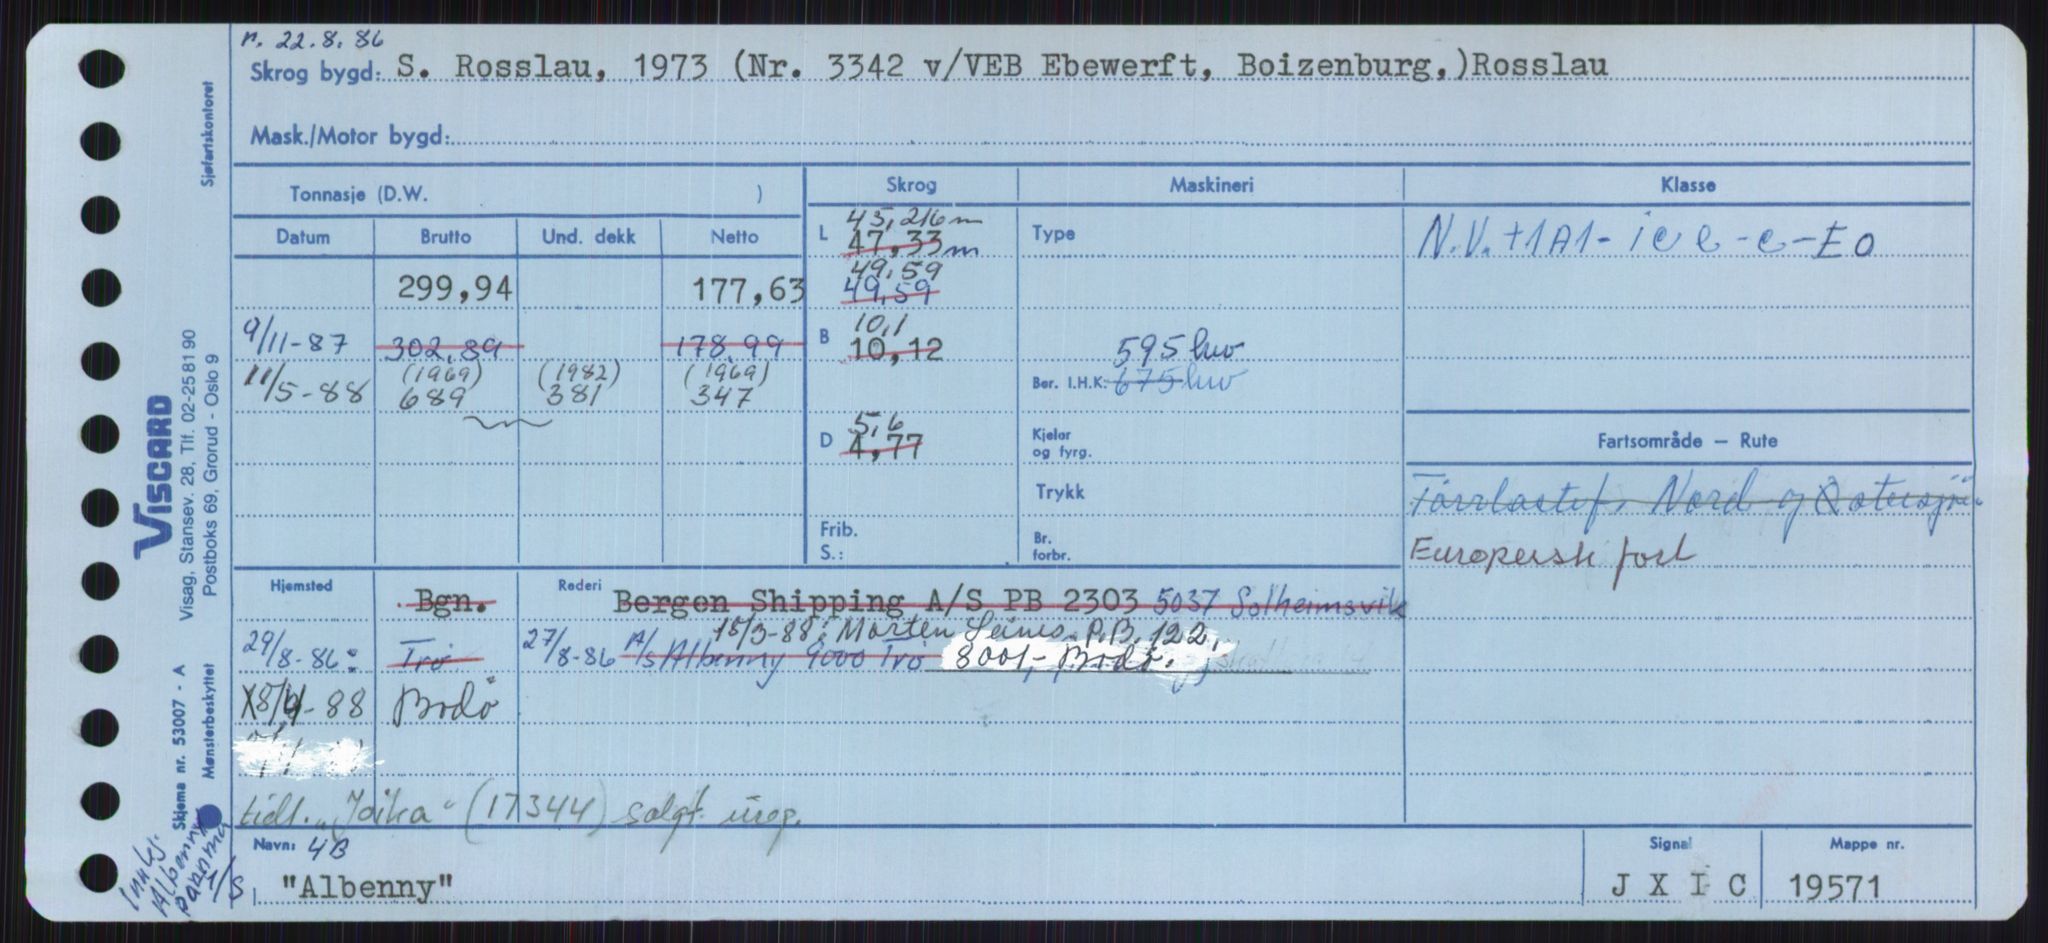 r. 22.8.86
Skrog bygd: S. Rosslau, 1973 (Nr. 3342 v/VEB Ebewerft, Boizenburg,)Rosslau
Mask./Motor bygd:
Tonnasje (D.W. )
Skrog
Maskineri
Klasse
Datum
Brutto
Und. dekk
Netto
L
45,216 m
47,33 m
Type
N.V. +1A1 - ice - c - EO
299,94
177,63
49,59
49,59
9/11-87
302,89
178,99
B
10,1
10,12
595 hw
11/5-88
(1969)
689
(1982)
381
(1969)
347
Ber. I.H.K: 675 hw
D
5,6
4,77
Kjelar
og fyrg.
Fartsområde – Rute
Trykk
Nord og Østersjø
Frib.
S.:
Br.
forbr.
Europeisk fart
Hjemsted
Bgn.
Rederi
Bergen Shipping A/S PB 2303 5037 Solheimsvik
15/3-88: Morten Seines P.B. 122,
29/8-86:
Trø
27/8-86 A/S Albenny 9000 Trø
8001 - Bodø.
X8/4-88
Bodø
tidl. "Joika" (17344) solgt. ureg.
Navn: 4B
"Albenny"
Signal
J X I C
Mappe nr.
19571
Sjøfartskontoret
VISCARD
Visag, Stansev. 28, Tlf. 02-25 81 90
Postboks 69, Grorud - Oslo 9
Skjema nr. 53007 - A
Mønsterbeskyttet
Albenny